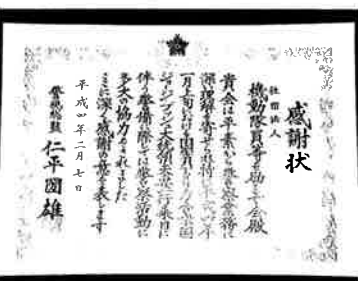 感謝状
社団法人
機動隊員等を励ます会殿
貴会は平素から警察業務に
深い理解を寄せられ特に
一月上旬における国賓アメリカ合衆国
大統領来日に
伴う警備に際しては警察活動に
多大の協力をされました
ここに深く感謝の意を表します
平成四年二月七日
警視総監 仁平圀雄